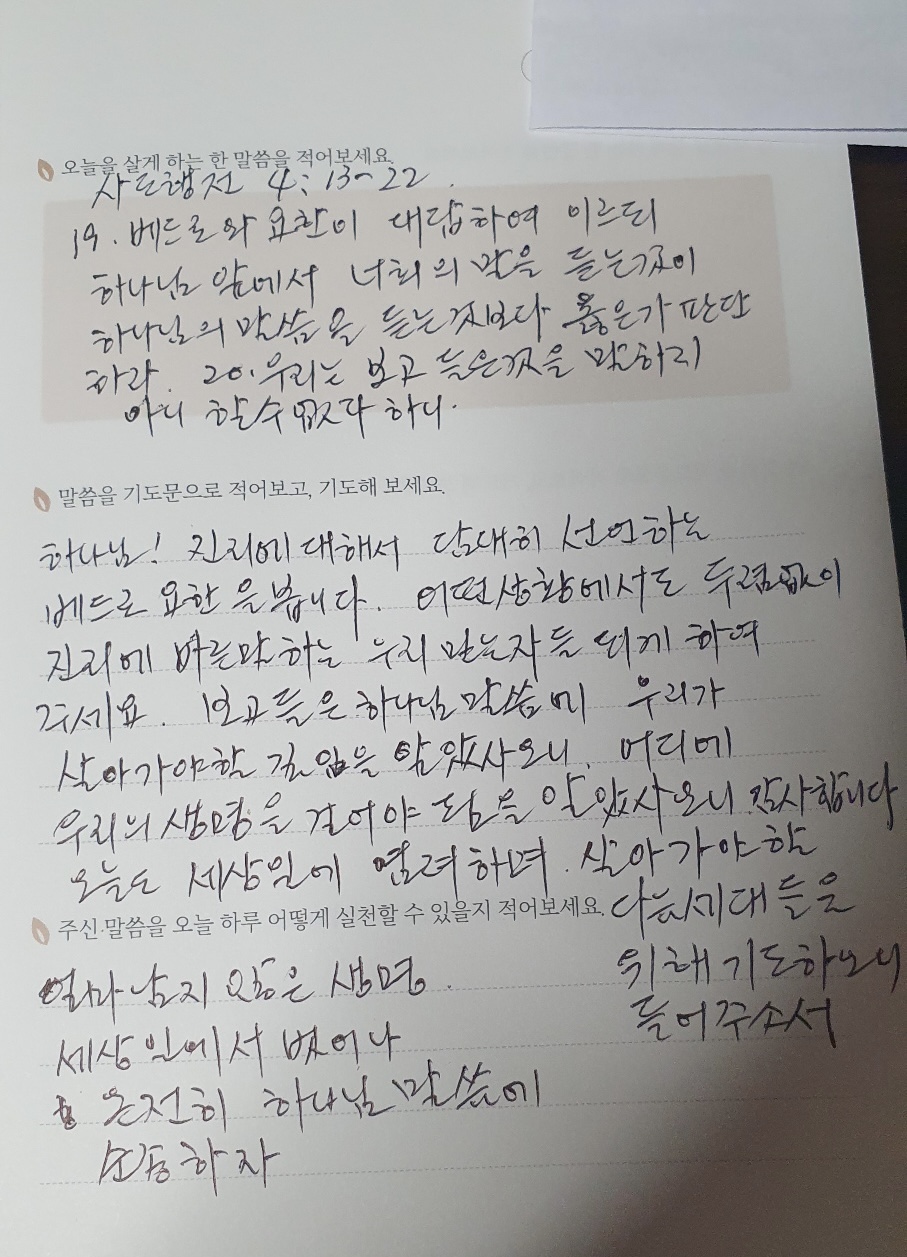 오늘을 살게 하는 한 말씀을 적어보세요.
사도행전 4:13~22.
19. 베드로와 요한이 대답하여 이르되
하나님 앞에서 너희의 말을 듣는것이
하나님의 말씀을 듣는것보다 옳은가 판단
하라. 20. 우리는 보고 들은것을 말하지
아니 할수 없다 하니.
말씀을 기도문으로 적어보고, 기도해 보세요.
하나님! 진리에 대해서 담대히 선언하는
베드로 요한을 봅니다. 어떤상황에서도 두렴없이
진리에 바른말 하는 우리 믿는자들 되게 하여
주세요. 보고 들은 하나님 말씀에 우리가
살아가야할 길임을 알았사오니, 어디에
우리의 생명을 걸어야 됨을 알았사오니 감사합니다
오늘도 세상일에 염려하며 살아가야할
다음세대들을
위해 기도하오니
들어주소서
주신 말씀을 오늘 하루 어떻게 실천할 수 있을지 적어보세요.
얼마 남지 않은 생명.
세상일에서 벗어나
온전히 하나님 말씀에
순종하자